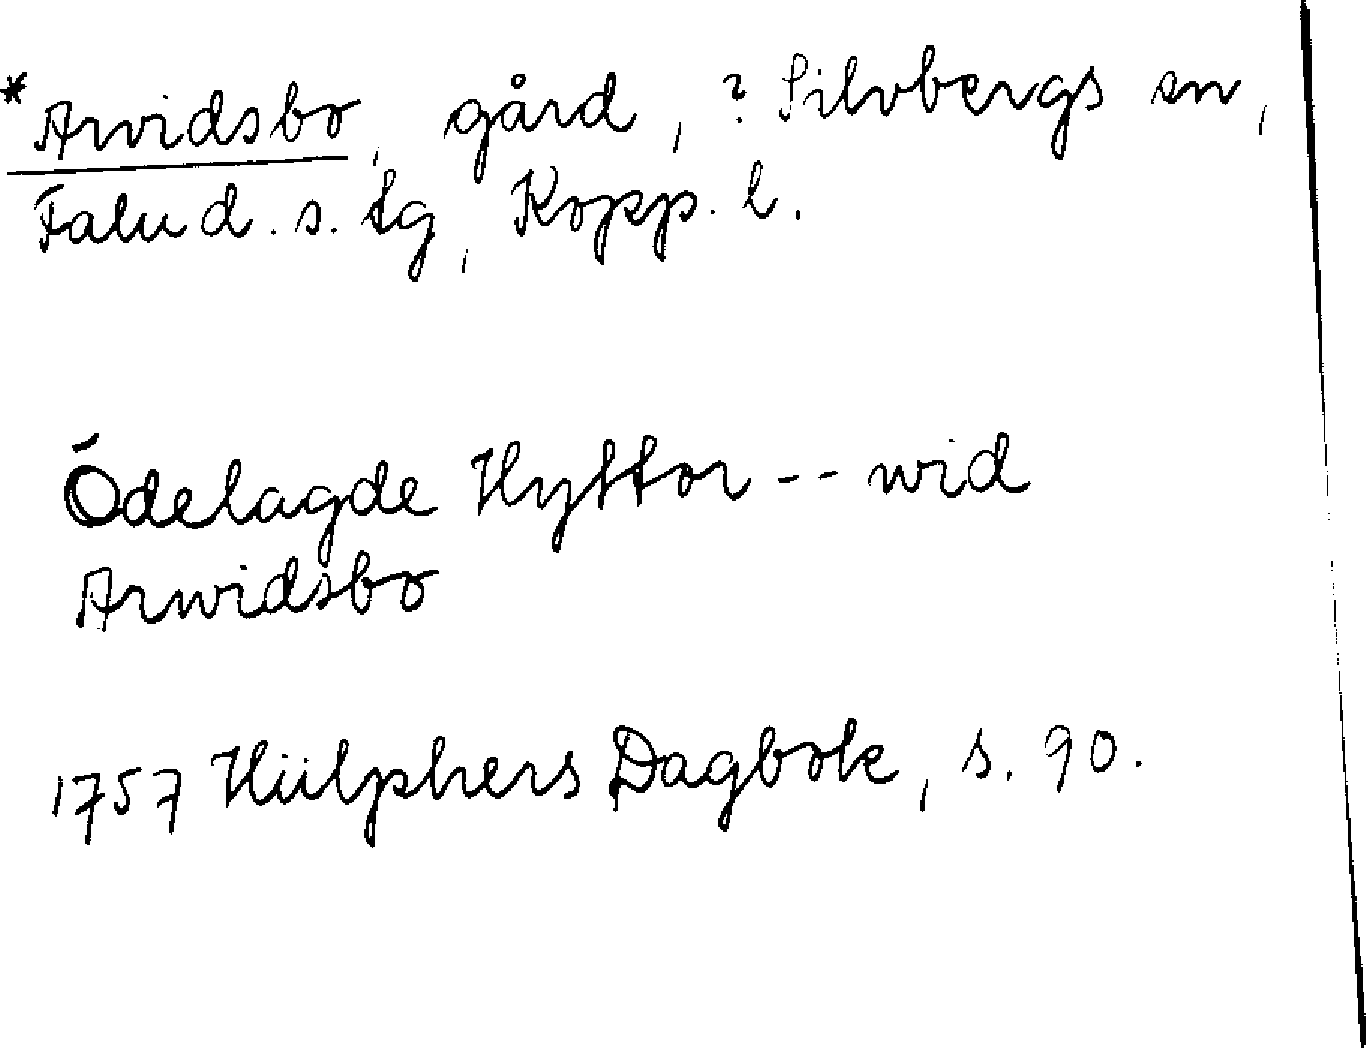 *Arvidsbo, gård, ? Silvbergs sn,
Falu d. s. tg, Kopp. l.
Ödelagde Hyttor -- wid
Arwidsbo
1757 Hülphers Dagbok, s. 90.